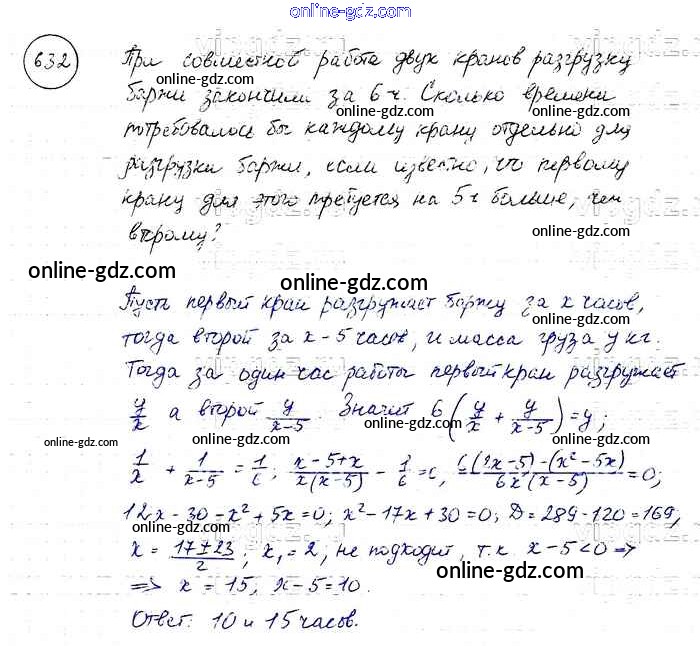 online-gdz.com
632
При совместной работе двух кранов разгрузку
online-gdz.com
баржи закончили за 6 ч. Сколько времени
потребовалось бы каждому крану отдельно для
online-gdz.com
разгрузки баржи, если известно, что первому
крану для этого требуется на 5ч больше, чем
второму?
online-gdz.com
online-gdz.com
online-gdz.com
Пусть первый кран разгружает баржу за x часов,
тогда второй за x-5 часов, и масса груза y кг.
online-gdz.com
Тогда за один час работы первый кран разгружает
y/x а второй y/(x-5). Значит 6(y/x + y/(x-5))=y;
online-gdz.com
online-gdz.com
online-gdz.com
1/x + 1/(x-5) = 1/6; (x-5+x)/(x(x-5)) - 1/6 = 0, (6(2x-5)-(x²-5x))/(6x(x-5)) = 0;
12x-30-x²+5x=0; x²-17x+30=0; D=289-120=169,
online-gdz.com
online-gdz.com
x = (17±23)/2; x₁=2, не подходит, т.к x-5<0 ⇒
online-gdz.com
⇒ x = 15, x-5=10.
Ответ: 10 и 15 часов.
online-gdz.com